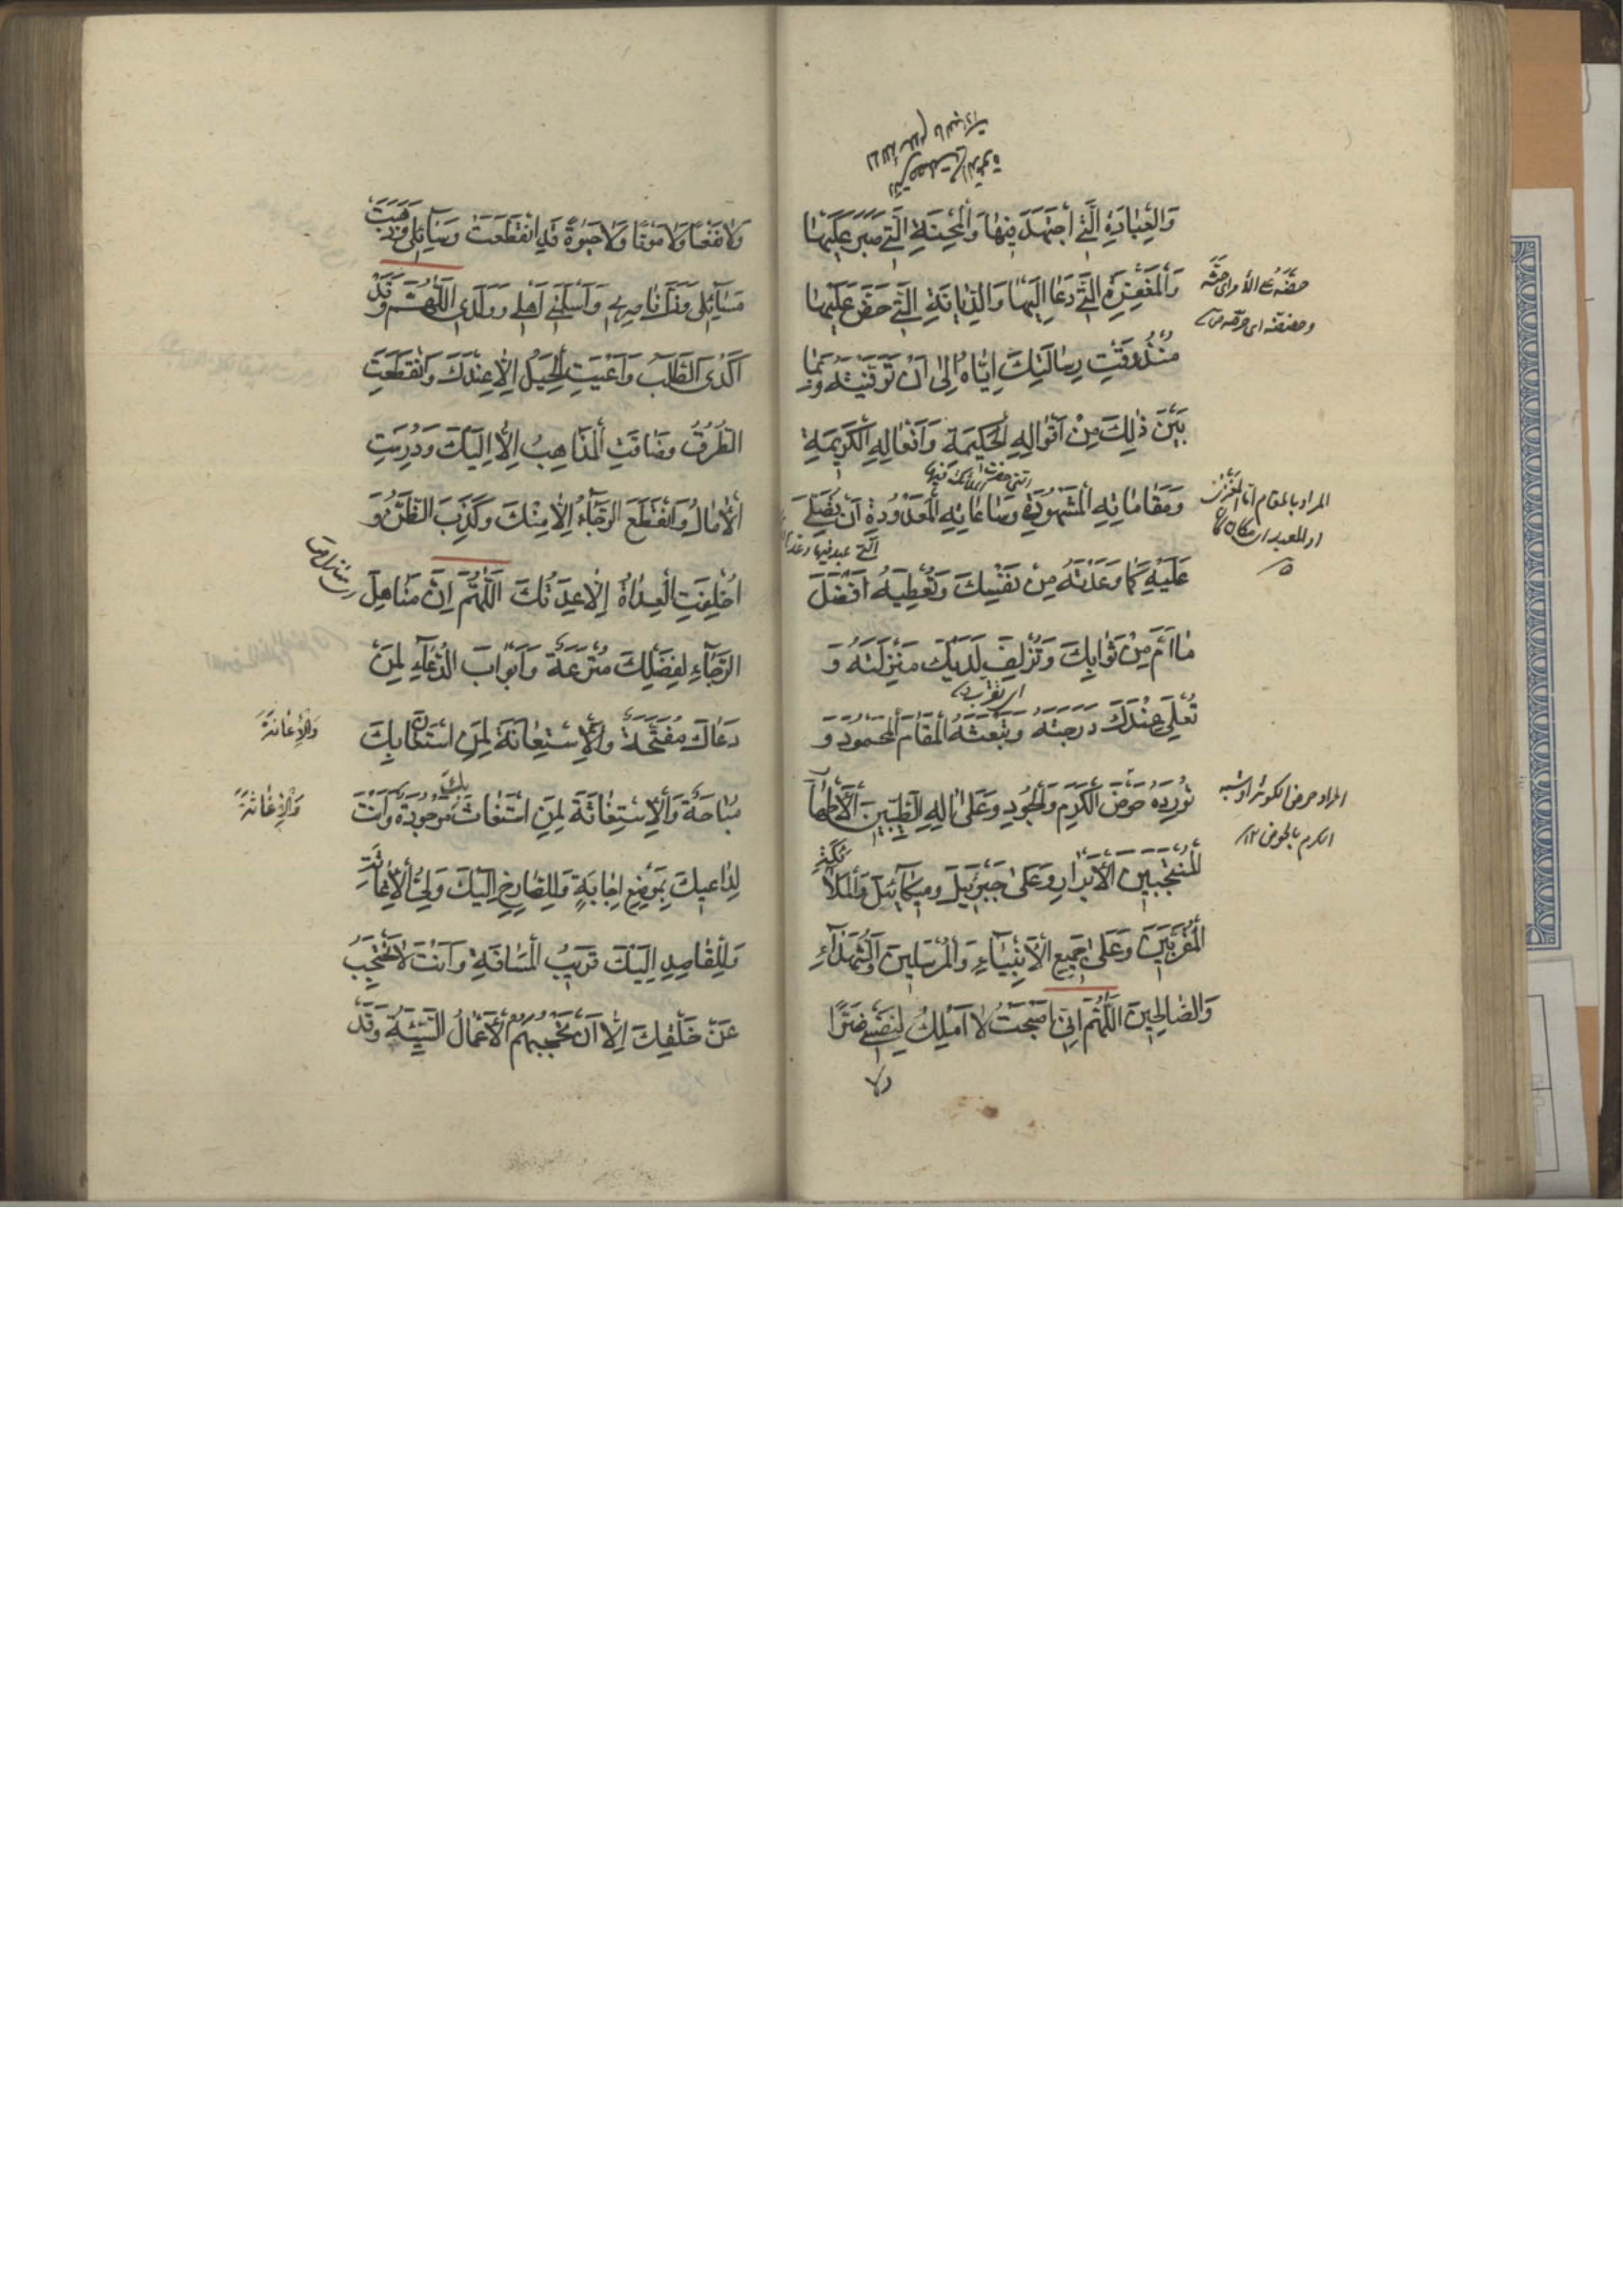 وَالْعِبَادَةِ الَّتِي اجْتَهَدَ فِيهَا وَالْمِحْنَةِ الَّتِي صَبَرَ عَلَيْهَا
وَالْمَغْفِرَةِ الَّتِي دَعَا إِلَيْهَا وَالدِّيَانَةِ الَّتِي حَضَّ عَلَيْهَا
مُنْذُ وَقْتِ رِسَالَتِكَ إِيَّاهُ إِلَى أَنْ تَوَفَّيْتَهُ وَبِمَا
بَيْنَ ذَلِكَ مِنْ أَقْوَالِهِ الْحَكِيمَةِ وَأَفْعَالِهِ الْكَرِيمَةِ
وَمَقَامَاتِهِ الْمَشْهُودَةِ وَسَاعَاتِهِ الْمَعْدُودَةِ أَنْ تُصَلِّيَ
عَلَيْهِ كَمَا وَعَدْتَهُ مِنْ نَفْسِكَ وَتُعْطِيَهُ أَفْضَلَ
مَا أَمَّ مِنْ ثَوَابِكَ وَتُزْلِفَ لَدَيْكَ مَنْزِلَتَهُ وَ
تُعْلِيَ عِنْدَكَ دَرَجَتَهُ وَتَبْعَثَهُ الْمَقَامَ الْمَحْمُودَ وَ
تُورِدَهُ حَوْضَ الْكَرَمِ وَالْجُودِ وَعَلَى آلِهِ الطَّيِّبِينَ الْأَطْهَارِ
الْمُنْتَجَبِينَ الْأَبْرَارِ وَعَلَى جَبْرَئِيلَ وَمِيكَائِيلَ وَالْمَلَائِكَةِ
الْمُقَرَّبِينَ وَعَلَى جَمِيعِ الْأَنْبِيَاءِ وَالْمُرْسَلِينَ وَالشُّهَدَاءِ
وَالصَّالِحِينَ اللَّهُمَّ إِنِّي أَصْبَحْتُ لَا أَمْلِكُ لِنَفْسِي ضَرًّا
ولا
المراد حوض الكوثر او شبه
الكرم بالحوض ١٢
وَلَا نَفْعًا وَلَا مَوْتًا وَلَا حَيٰوةً قَدِ انْقَطَعَتْ وَسَائِلِي وَذَهَبَتْ
مَسَائِلِي وَذَلَّ نَاصِرِي وَأَسْلَمَنِي أَهْلِي وَوَلَدِي اللَّهُمَّ وَقَدْ
أَكْدَى الطَّلَبُ وَأَعْيَتِ الْحِيَلُ إِلَّا عِنْدَكَ وَانْقَطَعَتِ
الطُّرُقُ وَضَاقَتِ الْمَذَاهِبُ إِلَّا إِلَيْكَ وَدُرِسَتِ
الْآمَالُ وَانْقَطَعَ الرَّجَاءُ إِلَّا مِنْكَ وَكَذِبَ الظَّنُّ وَ
أُخْلِفَتِ الْعِدَاةُ إِلَّا عِدَتُكَ اللَّهُمَّ إِنَّ مَنَاهِلَ
الرَّجَاءِ لِفَضْلِكَ مُتْرَعَةٌ وَأَبْوَابَ الدُّعَاءِ لِمَنْ
دَعَاكَ مُفَتَّحَةٌ وَالْإِسْتِعَانَةَ لِمَنِ اسْتَعَانَ بِكَ
وَالْإِعَانَةَ
مُبَاحَةٌ وَالْإِسْتِغَاثَةَ لِمَنِ اسْتَغَاثَ بِكَ مَوْجُودَةٌ وَأَنْتَ
وَالْإِغَاثَةَ
لِدَاعِيكَ بِمَوْضِعِ إِجَابَةٍ وَلِلصَّارِخِ إِلَيْكَ وَلِيُّ الْإِغَاثَةِ
وَلِلْقَاصِدِ إِلَيْكَ قَرِيبُ الْمَسَافَةِ وَأَنْتَ لَا تَحْتَجِبُ
عَنْ خَلْقِكَ إِلَّا أَنْ تَحْجُبَهُمُ الْأَعْمَالُ السَّيِّئَةُ وَقَدْ